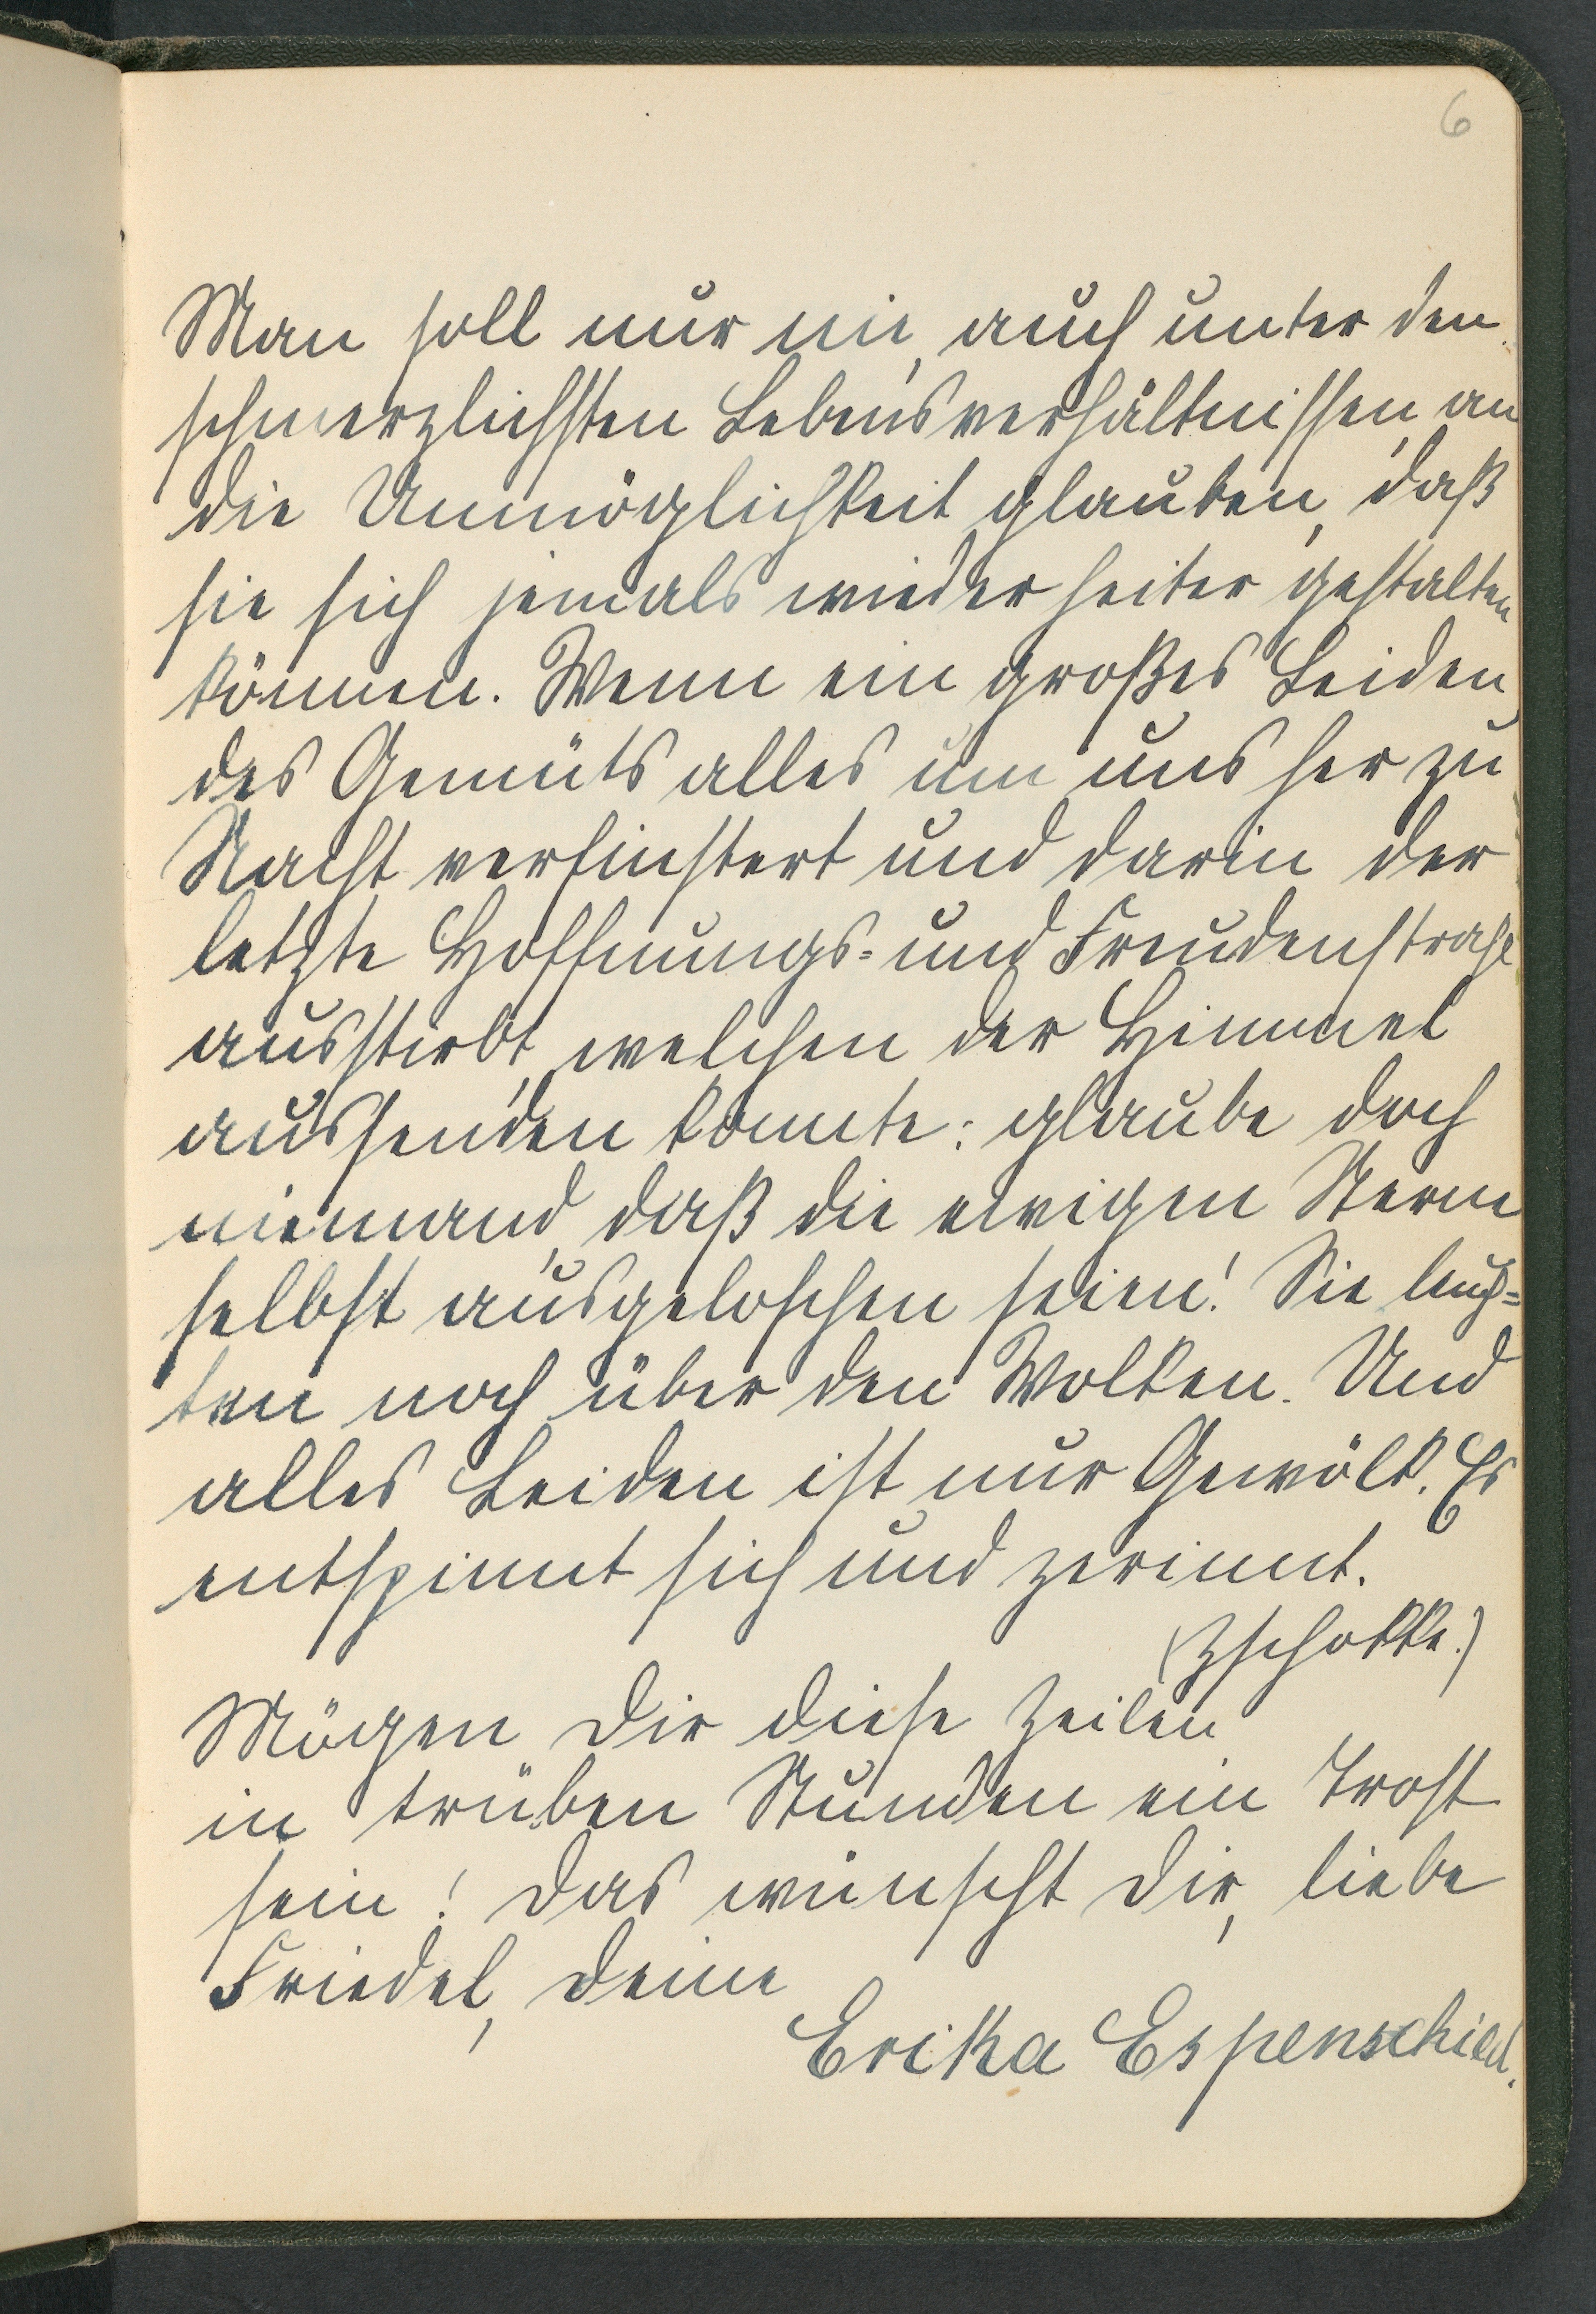 6
Man soll nur nie, auch unter den
schmerzlichsten Lebensverhältnissen, an
die Unmöglichkeit glauben, daß
sie sich jemals wieder heiter gestalten
können. Wenn ein großes Leiden
des Gemüts alles um uns her zu
Nacht verfinstert und darin der
letzte Hoffnungs- und Freudenstrahl
ausstirbt, welchen der Himmel
aussenden konnte: glaube doch
niemand, daß die ewigen Sterne
selbst ausgeloschen seien! Sie leuch-
ten noch über den Wolken. Und
alles Leiden ist nur Gewölk. Es
entspinnt sich und zerinnt.
(Zschokke.)
Mögen Dir diese Zeilen
in trüben Stunden ein Trost
sein! Das wünscht Dir, liebe
Friedel, Deine
Erika Espenschied.